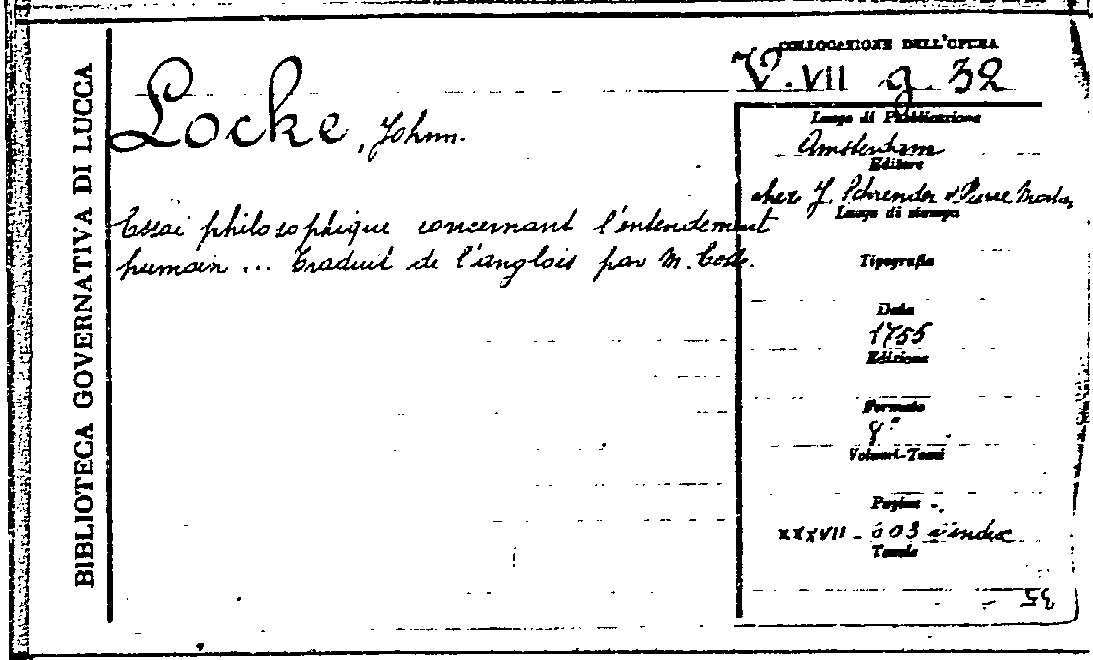 BIBLIOTECA GOVERNATIVA DI LUCCA
Locke, John.
Essai philosophique concernant l'entendement
humain ... traduit de l'anglois par M. Coste.
COLLOCAZIONE DELL'OPERA
V. VII g. 32
Luogo di Pubblicazione
Amsterdam
Editore
chez J. Schreuder & Pierre Mortier
Luogo di stampa
Tipografia
Data
1755
Edizione
Formato
Volumi-Tomi
Pagine
XXXVII - 603 index
Tavole
35